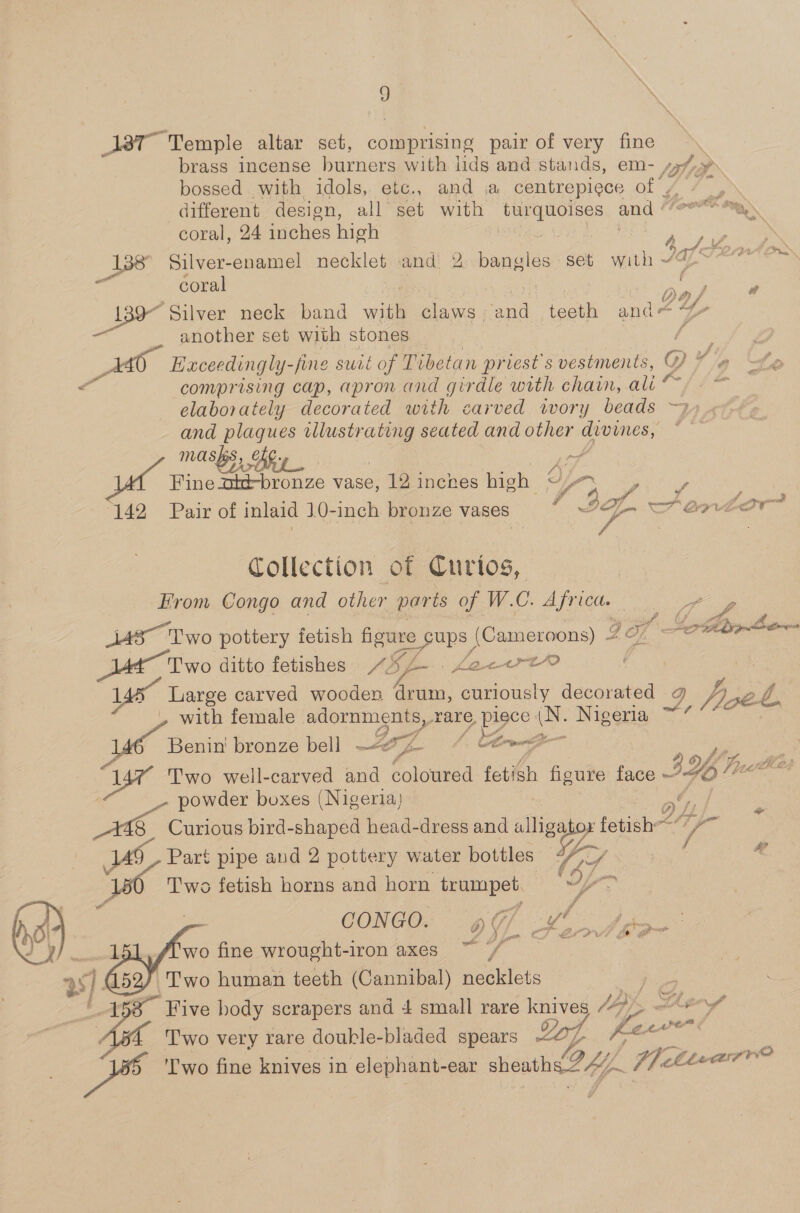 9
137 Temple altar set, comprising pair of very fine
brass incense burners with lids and stands, em-
bossed with idols, etc., and a centrepiece of
different design, all set with turquoises and
coral, 24 inches high
138 Silver-enamel necklet and 2 bangles set with
coral
139 Silver neck band with claws and teeth and
another set with stones
140 Exceedingly-fine suit of Tibetan priest's vestments,
comprising cap, apron and girdle with chain, all
elaborately decorated with carved ivory beads
and plaques illustrating seated and other divines,
masks, etc.,
141 Fine old bronze vase, 12 inches high
142 Pair of inlaid 10-inch bronze vases
Collection of Curios,
From Congo and other parts of W.C. Africa.
143 Two pottery fetish figure cups (Cameroons)
144 Two ditto fetishes
145 Large carved wooden drum, curiously decorated
with female adornments, rare piece (N. Nigeria
146 Benin bronze bell
147 Two well-carved and coloured fetish figure face
powder boxes (Nigeria)
148 Curious bird-shaped head-dress and alligator fetish
149 Part pipe and 2 pottery water bottles
150 Two fetish horns and horn trumpet
CONGO.
151 Two fine wrought-iron axes
152 Two human teeth (Cannibal) necklets
153 Five body scrapers and 4 small rare knives
154 Two very rare double-bladed spears
155 Two fine knives in elephant-ear sheaths